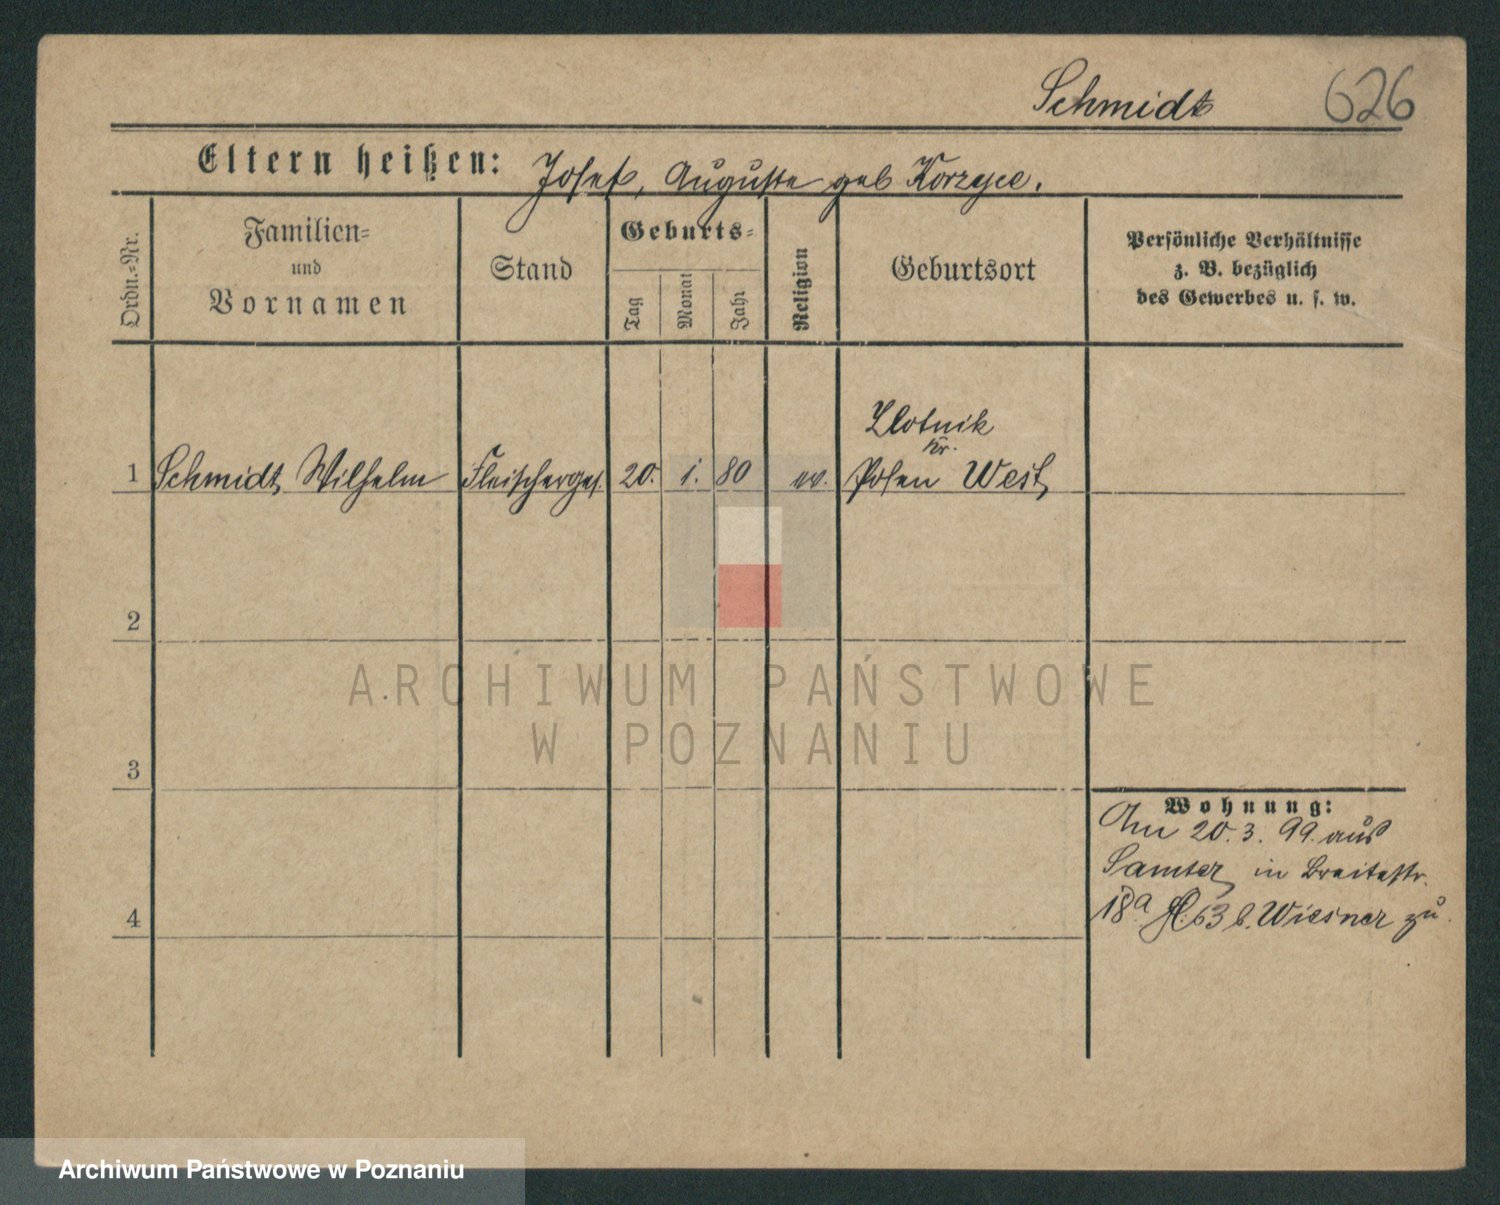 Schmidt 626
Eltern heißen: Josef, Auguste geb
Ordn.=Nr.
Familien=
und
Vornamen
Stand
Geburts=
Tag
Monat
Jahr
Religion
Geburtsort
Persönliche Verhältnisse
z. B. bezüglich
des Gewerbes u. s. w.
1 Schmidt, Wilhelm Fleischerges. 20. 1. 80 ev.
Zlotnik
Kr.
Posen West
2
3
4
Wohnung:
Am 20.3.99. aus
Samter in Breitestr.
18a b. Wiesner zu.
ARCHIWUM PAŃSTWOWE
W POZNANIU
Archiwum Państwowe w Poznaniu